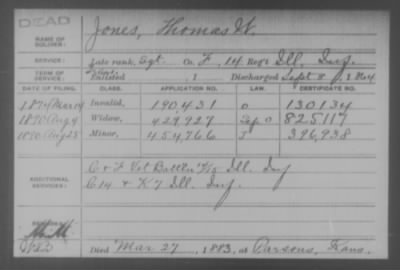 DEAD
Jones, Thomas W.
NAME OF SOLDIER:
SERVICE: Late rank, Sgt. Co. F, 14 Reg't Ill. Inf.
TERM OF SERVICE: Enlisted , 1 Discharged Sept 8, 1864
DATE OF FILING. CLASS. APPLICATION NO. LAW. CERTIFICATE NO.
1874 Mar 14 Invalid, 190.431 0 130134
1890 Aug 4 Widow, 429.927 825117
1890 Aug 25 Minor, 454.766 396,938
ADDITIONAL SERVICES: C & F Vet Battln Ill. Inf
14 & Ill. Inf.
Died Mar 27, 1883, at Parsons, Kans.